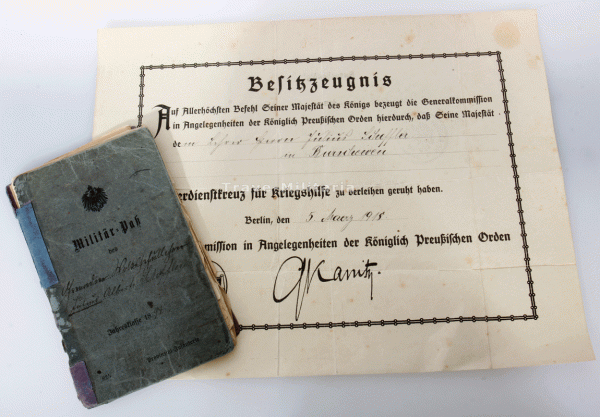 Besitzzeugnis
Auf Allerhöchsten Befehl Seiner Majestät des Königs bezeugt die Generalkommission
in Angelegenheiten der Königlich Preußischen Orden hierdurch, daß Seine Majestät
dem Lehrer Herrn Julius
in
erdienstkreuz für Kriegshilfe zu verleihen geruht haben.
Berlin, den 5 März 1918
mmission in Angelegenheiten der Königlich Preußischen Orden
Militär-Paß
des
Albert
Jahresklasse